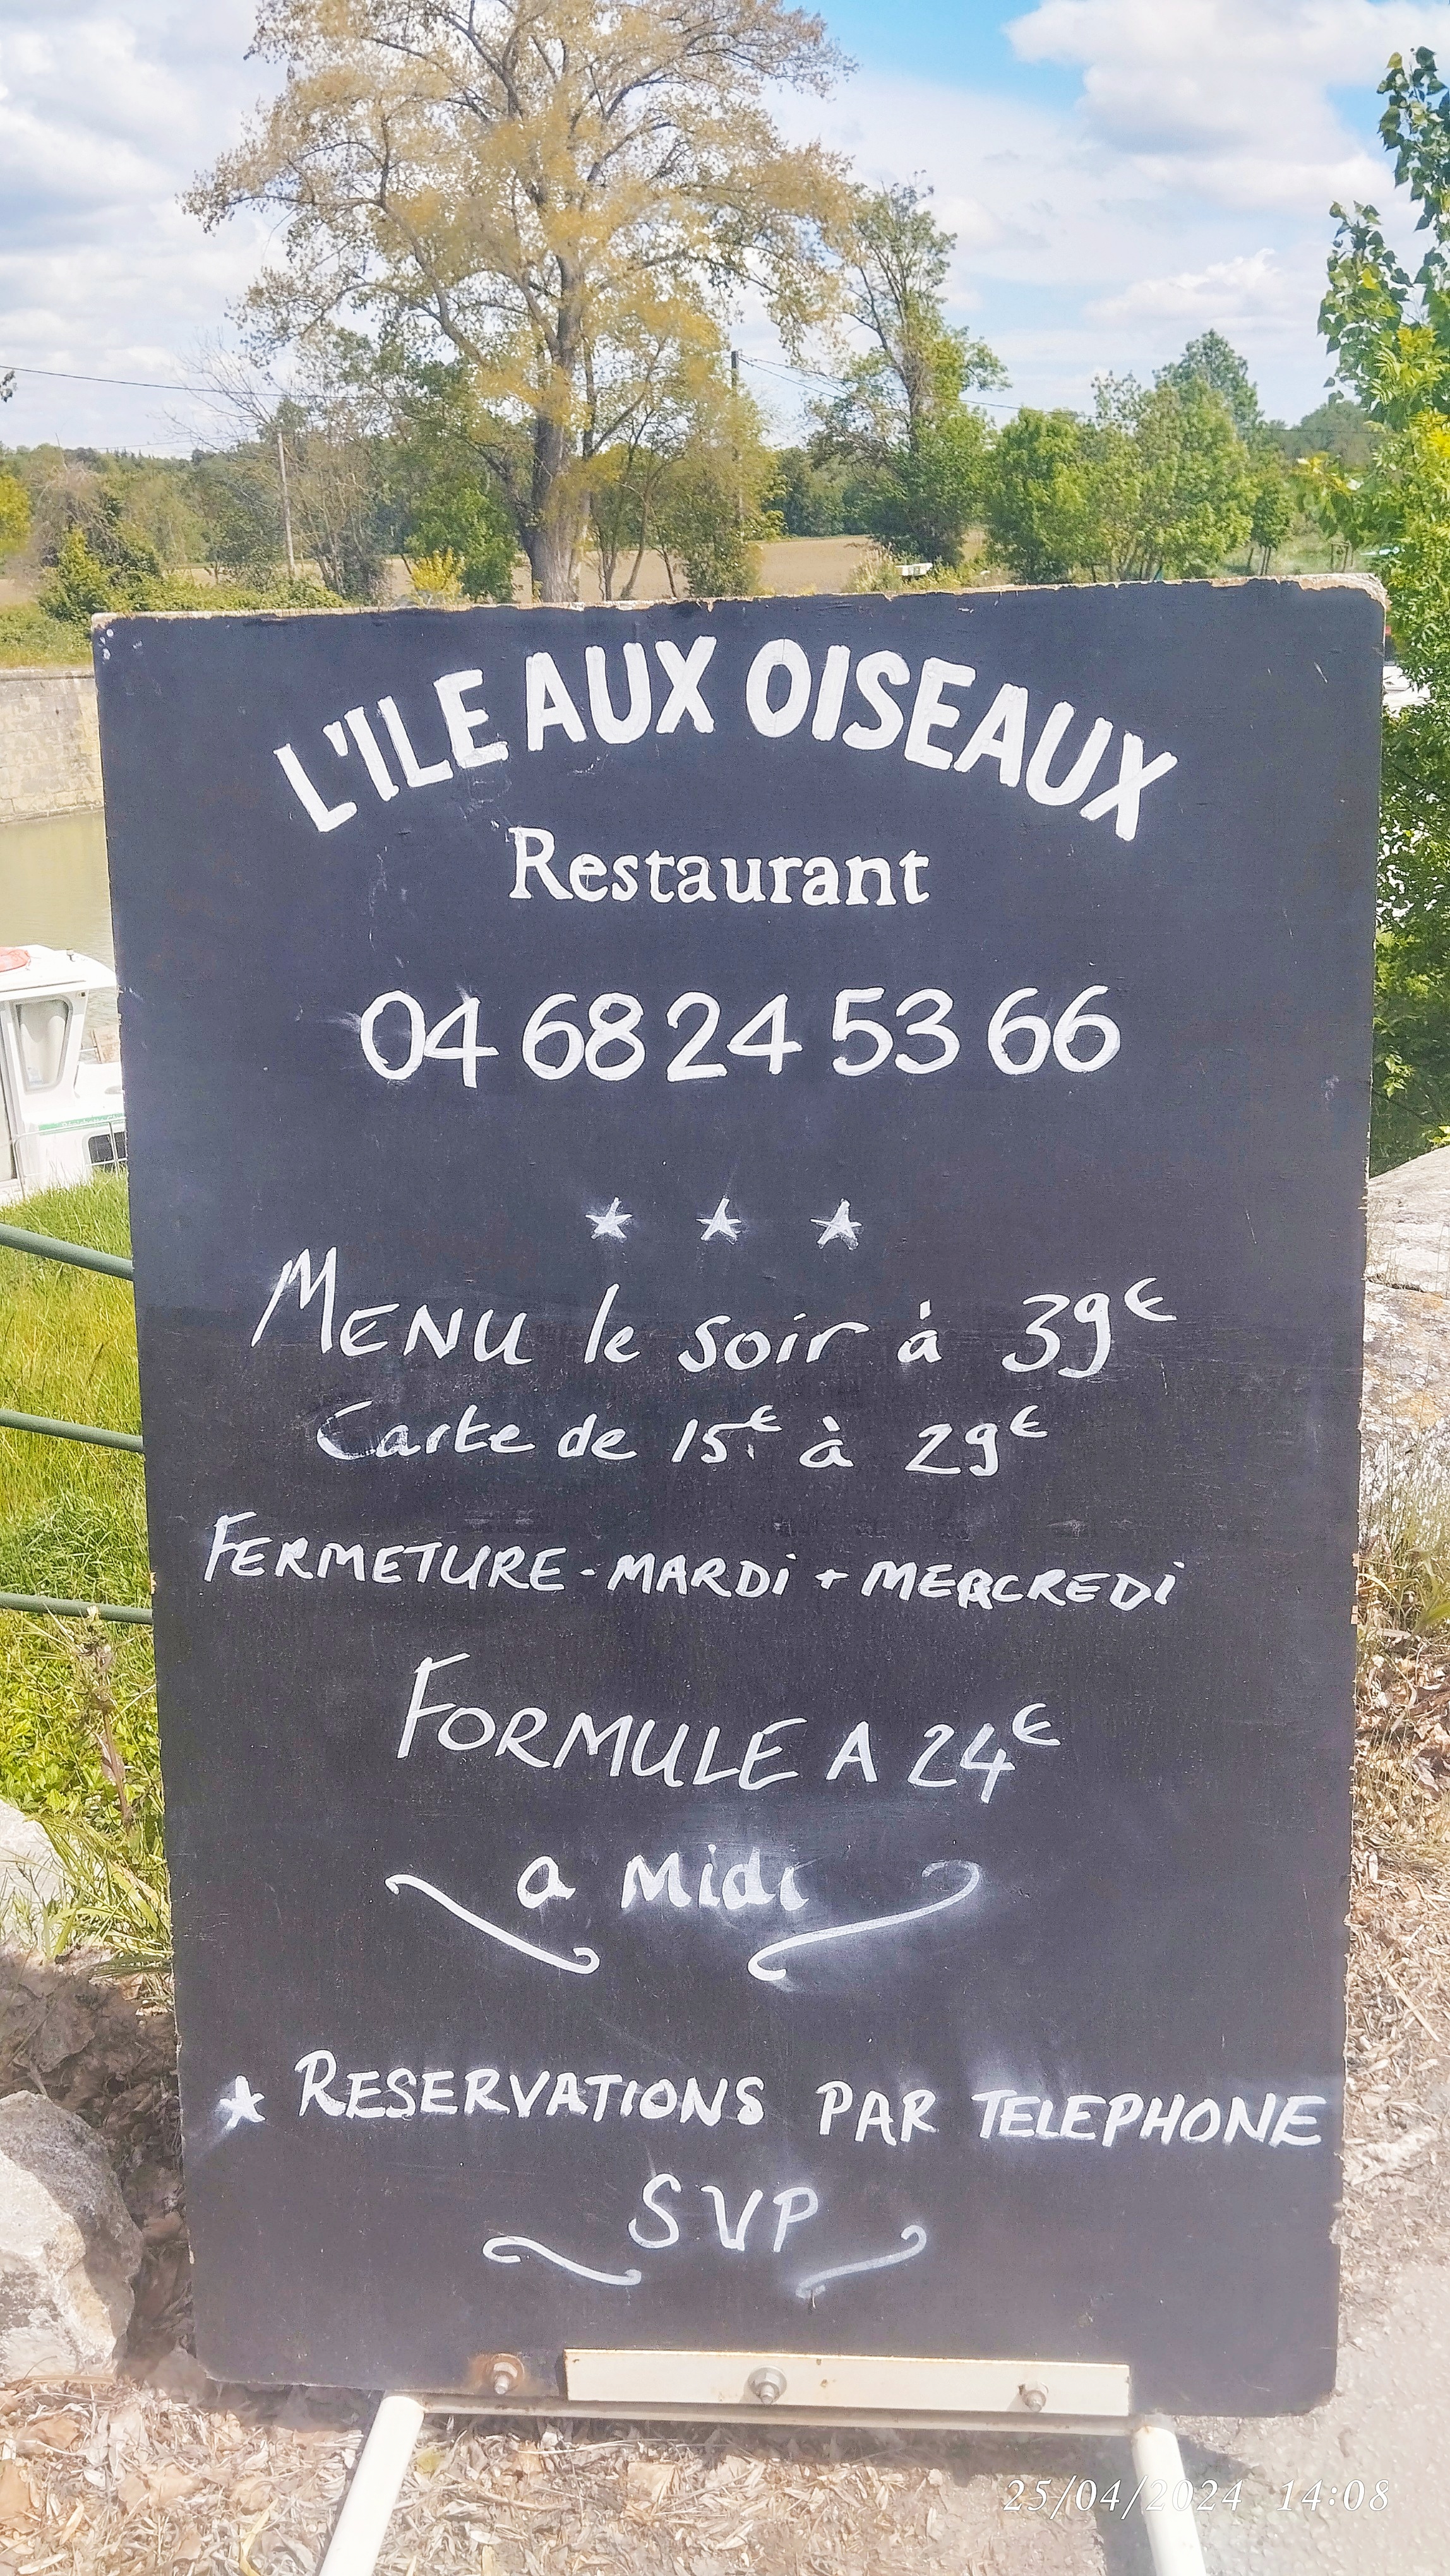 L'ILE AUX OISEAUX
Restaurant
04 68 24 53 66
MENU le soir à 39€
Carte de 15€ à 29€
FERMETURE - MARDi + MERCREDi
FORMULE A 24€
a Midi
★ RESERVATIONS PAR TELEPHONE
SVP
25/04/2024 14:08